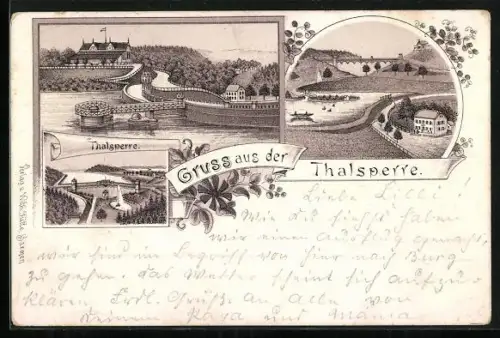 Thalsperre.
Gruss aus der
Thalsperre.
Liebe Lilli!
Wie Du siehst haben
wir einen Ausflug gemacht,
wir sind im Begriff von hier nach Burg
zu gehen. Das Wetter scheint sich aufzu-
klären. Grüße an Alle von
Deinem Papa und Mama